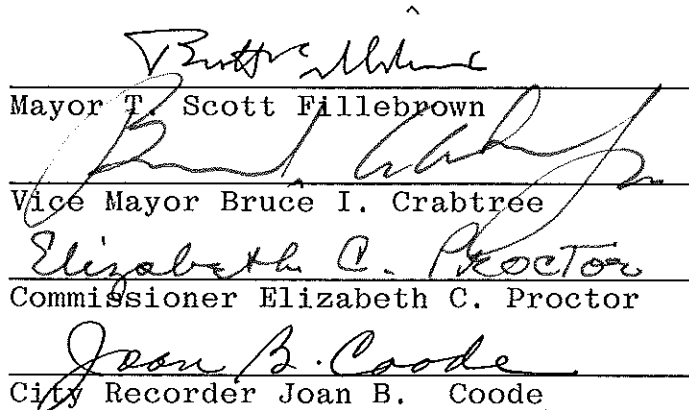 Mayor T. Scott Fillebrown
Vice Mayor Bruce I. Crabtree
Elizabeth C. Proctor
Commissioner Elizabeth C. Proctor
Joan B. Coode
City Recorder Joan B. Coode